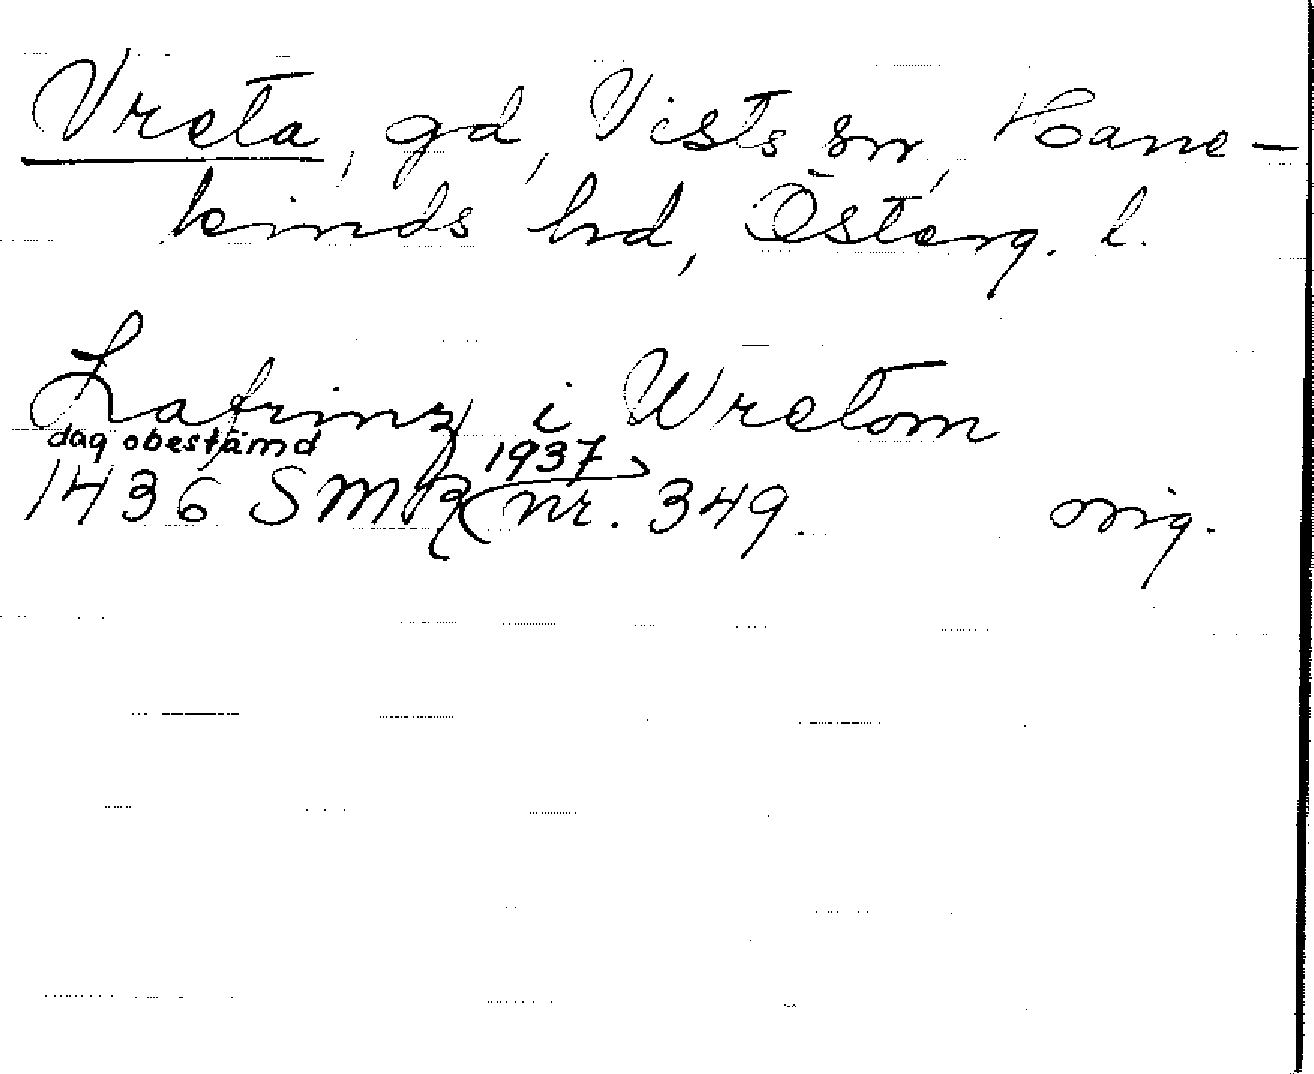 Vreta, gd, Vists sn, Hane-
kinds hd, Österg. l.
Lafrinz i Wretom
dag obestämd
1937
1436 SMR (nr. 349. orig.